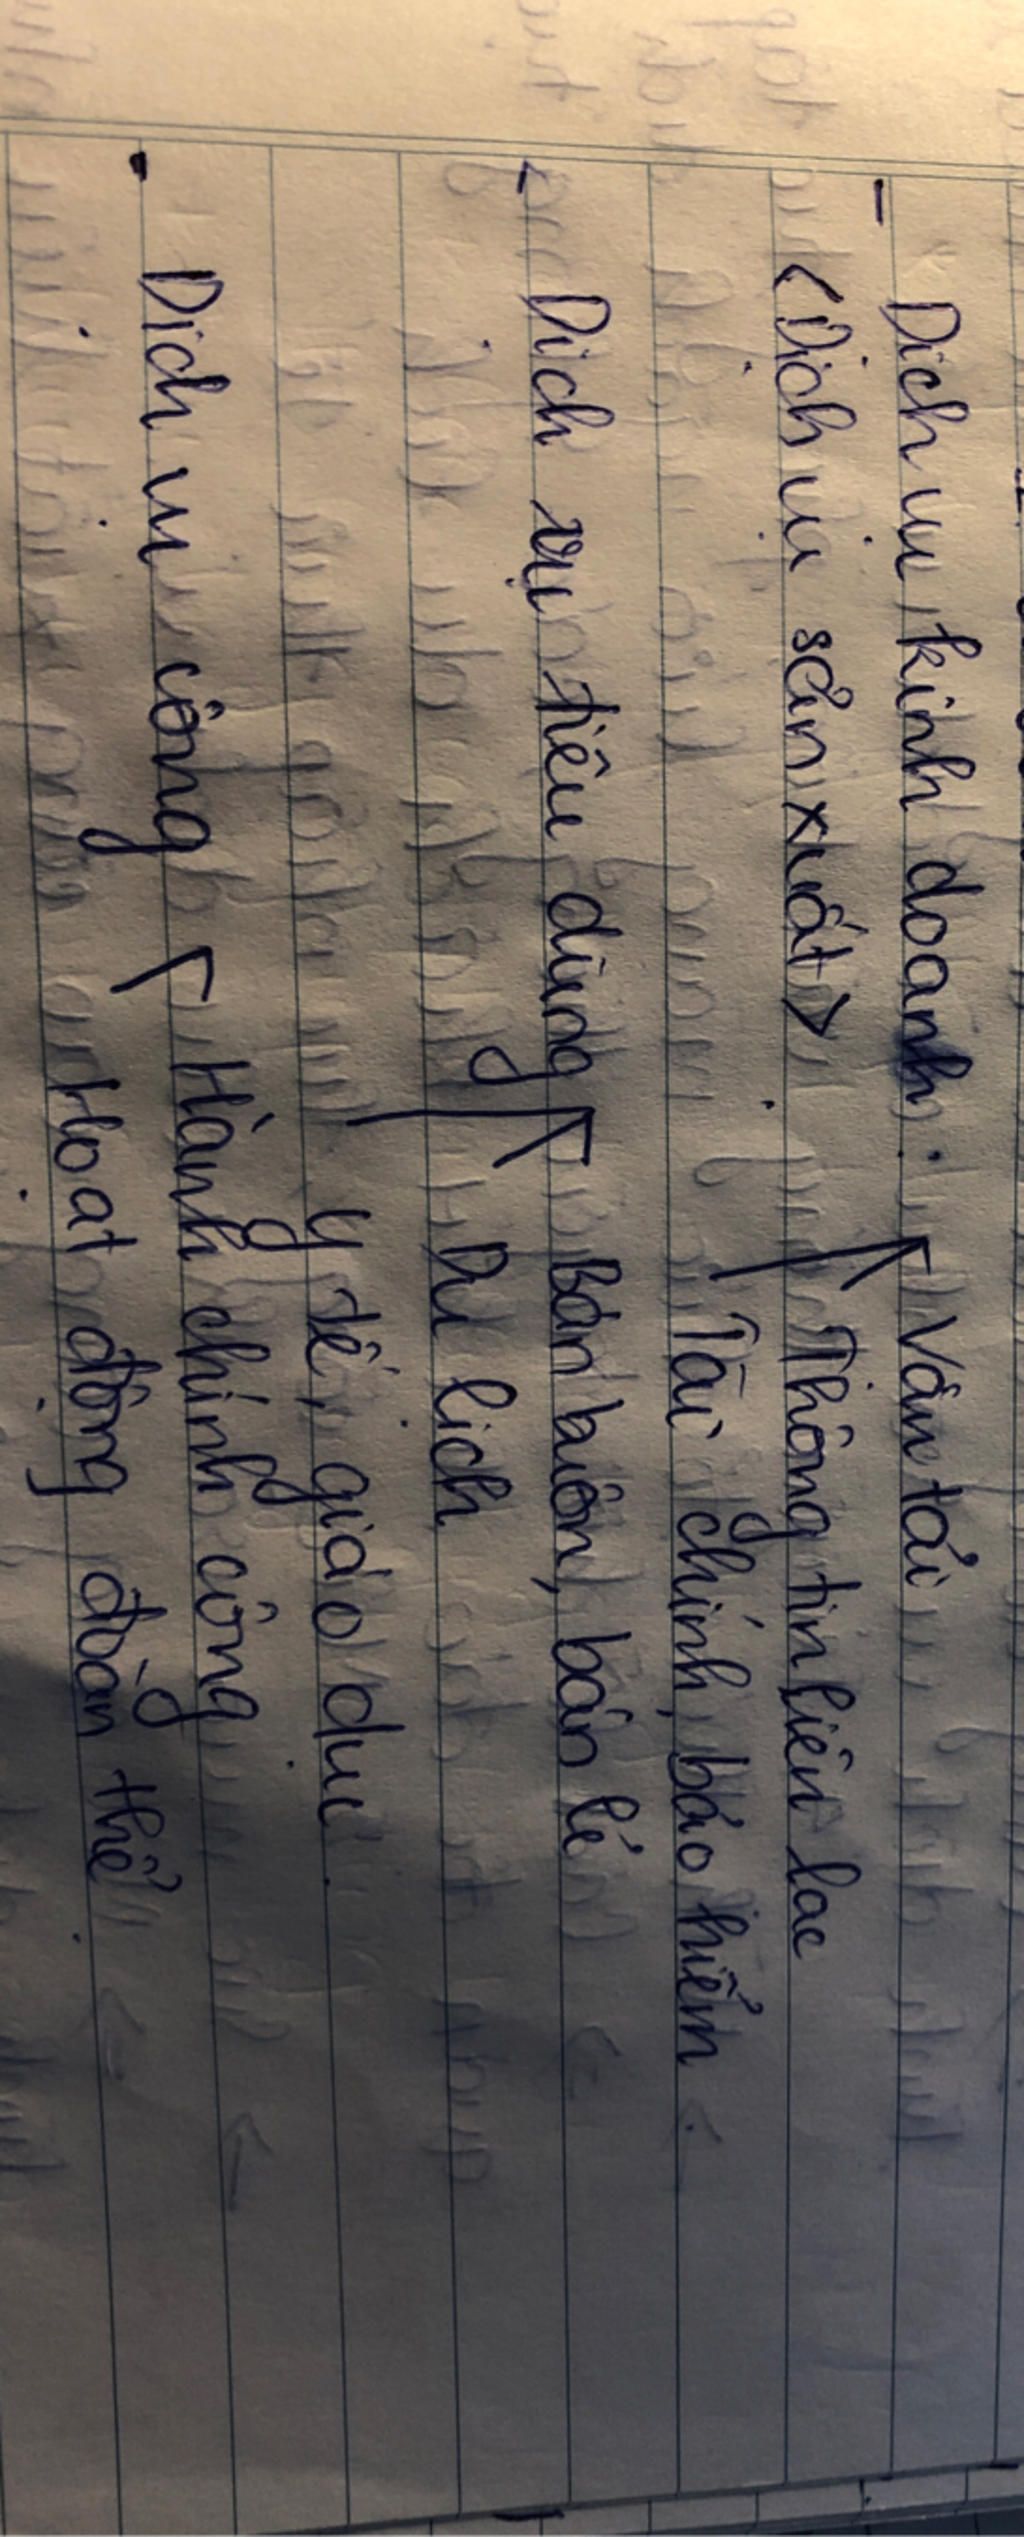 - Dịch vụ kinh doanh: Vận tải
<Dịch vụ sản xuất> Thông tin liên lạc
Tài chính, bảo hiểm
- Dịch vụ tiêu dùng Bán buôn, bán lẻ
Du lịch
Y tế, giáo dục
- Dịch vụ công Hành chính công
Hoạt động đoàn thể